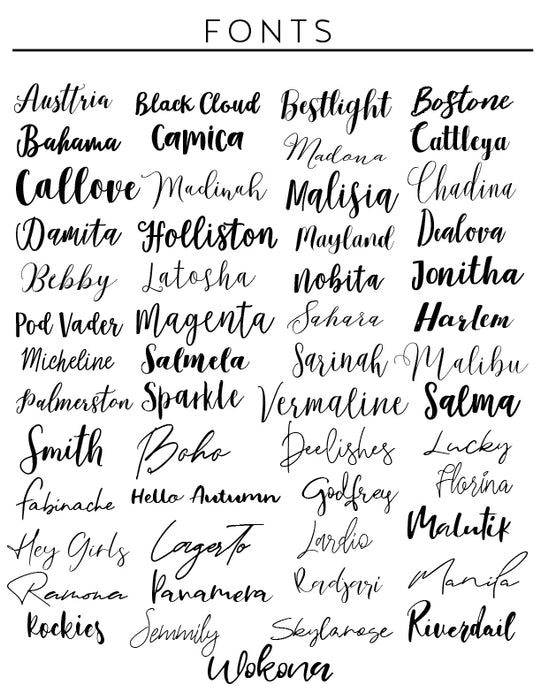 FONTS
Austtria Black Cloud Bestlight Bostone
Bahama Camica Madona Cattleya
Callove Madinah Malisia Chadina
Damita Holliston Mayland Dealova
Bebby Latosha Nobita Jonitha
Pod Vader Magenta Sahara Harlem
Micheline Salmela Sarinah Malibu
Palmerston Sparkle Vermaline Salma
Smith Boho Deelishes Lucky
Fabinache Hello Autumn Godfrey Florina
Hey Girls Lagerto Lardio Malutik
Ramona Panamera Radjari Manila
Rockies Semmily Skylarose Riverdail
Wokona